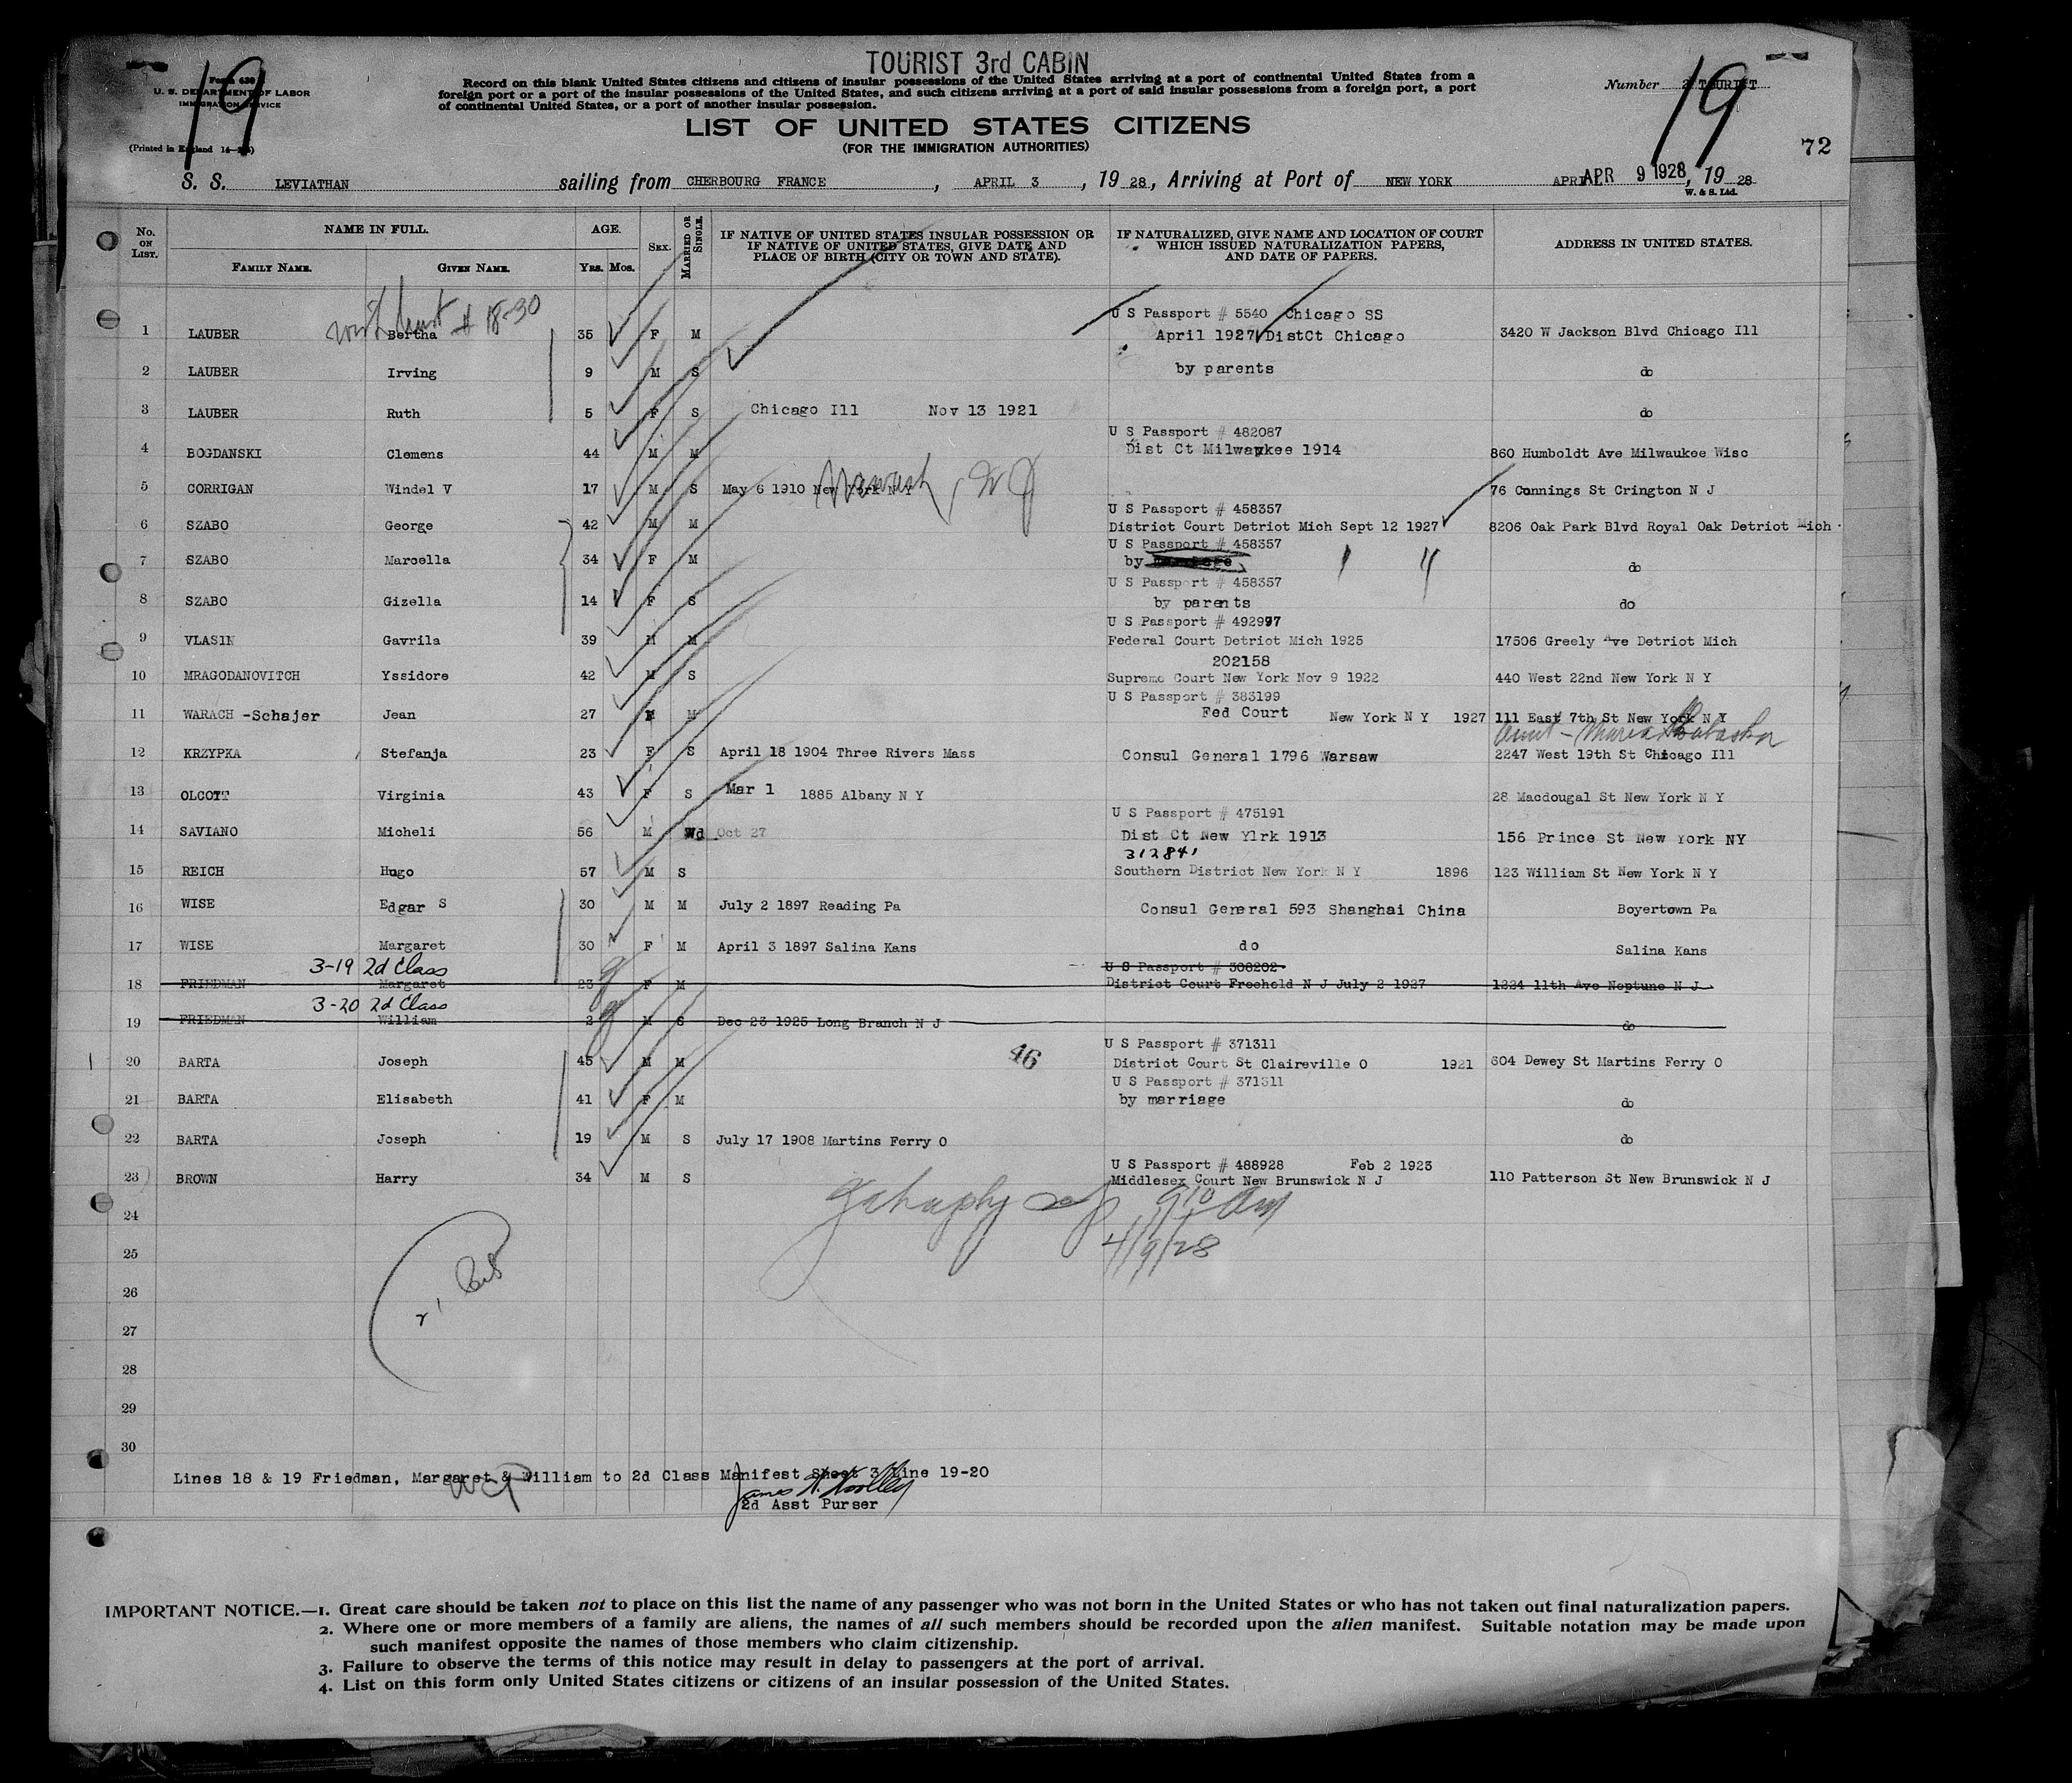 TOURIST 3rd CABIN
19
19
Form 630
U. S. DEPARTMENT OF LABOR
IMMIGRATION SERVICE
(Printed in England
Record on this blank United States citizens and citizens of insular possessions of the United States arriving at a port of continental United States from a
foreign port or a port of the insular possessions of the United States, and such citizens arriving at a port of said insular possessions from a foreign port, a port
of continental United States, or a port of another insular possession.
Number 2 TOURIST
LIST OF UNITED STATES CITIZENS
(FOR THE IMMIGRATION AUTHORITIES)
72
S. S. LEVIATHAN sailing from CHERBOURG FRANCE, APRIL 3, 19 28, Arriving at Port of NEW YORK APRIL APR 9 1928, 19 28
W. & S. Ltd.
No. ON LIST. NAME IN FULL. FAMILY NAME. GIVEN NAME. AGE. Yrs. Mos. SEX. MARRIED OR SINGLE. IF NATIVE OF UNITED STATES INSULAR POSSESSION OR IF NATIVE OF UNITED STATES, GIVE DATE AND PLACE OF BIRTH (CITY OR TOWN AND STATE). IF NATURALIZED, GIVE NAME AND LOCATION OF COURT WHICH ISSUED NATURALIZATION PAPERS, AND DATE OF PAPERS. ADDRESS IN UNITED STATES.
# 18-30
U S Passport # 5540 Chicago SS
1 LAUBER Bertha 35 F M April 1927 DistCt Chicago 3420 W Jackson Blvd Chicago Ill
2 LAUBER Irving 9 M S by parents do
3 LAUBER Ruth 5 F S Chicago Ill Nov 13 1921 do
U S Passport # 482087
4 BOGDANSKI Clemens 44 M M Dist Ct Milwapkee 1914 860 Humboldt Ave Milwaukee Wisc
5 CORRIGAN Windel V 17 M S May 6 1910 New York N Y Newark, NJ 76 Connings St Crington N J
U S Passport # 458357
6 SZABO George 42 M M District Court Detriot Mich Sept 12 1927 8206 Oak Park Blvd Royal Oak Detriot Mich
U S Passport # 458357
7 SZABO Marcella 34 F M by marriage do
U S Passport # 458357
8 SZABO Gizella 14 F S by parents do
U S Passport # 492997
9 VLASIN Gavrila 39 M M Federal Court Detriot Mich 1925 17506 Greely Ave Detriot Mich
202158
10 MRAGODANOVITCH Yssidore 42 M S Supreme Court New York Nov 9 1922 440 West 22nd New York N Y
U S Passport # 383199
11 WARACH -Schajer Jean 27 M M Fed Court New York N Y 1927 111 East 7th St New York N Y
Aunt - Maria
12 KRZYPKA Stefanja 23 F S April 18 1904 Three Rivers Mass Consul General 1796 Warsaw 2247 West 19th St Chicago Ill
13 OLCOTT Virginia 43 F S Mar 1 1885 Albany N Y 28 Macdougal St New York N Y
U S Passport # 475191
14 SAVIANO Micheli 56 M Wd Oct 27 Dist Ct New Ylrk 1913 156 Prince St New York NY
312841
15 REICH Hugo 57 M S Southern District New York N Y 1896 123 William St New York N Y
16 WISE Edgar S 30 M M July 2 1897 Reading Pa Consul General 593 Shanghai China Boyertown Pa
17 WISE Margaret 30 F M April 3 1897 Salina Kans do Salina Kans
3-19 2d Class U S Passport # 308202
18 FRIEDMAN Margaret 23 F M District Court Freehold N J July 2 1927 1224 11th Ave Neptune N J
3-20 2d Class
19 FRIEDMAN William 2 M S Dec 23 1925 Long Branch N J do
46 U S Passport # 371311
20 BARTA Joseph 45 M M District Court St Claireville O 1921 604 Dewey St Martins Ferry O
U S Passport # 371311
21 BARTA Elisabeth 41 F M by marriage do
22 BARTA Joseph 19 M S July 17 1908 Martins Ferry O do
U S Passport # 488928 Feb 2 1923
23 BROWN Harry 34 M S Middlesex Court New Brunswick N J 110 Patterson St New Brunswick N J
24 910 am
25 4/9/28
26
27
28
29
30
Lines 18 & 19 Friedman, Margaret & William to 2d Class Manifest Sheet 3 Line 19-20
2d Asst Purser
IMPORTANT NOTICE.—1. Great care should be taken not to place on this list the name of any passenger who was not born in the United States or who has not taken out final naturalization papers.
2. Where one or more members of a family are aliens, the names of all such members should be recorded upon the alien manifest. Suitable notation may be made upon
such manifest opposite the names of those members who claim citizenship.
3. Failure to observe the terms of this notice may result in delay to passengers at the port of arrival.
4. List on this form only United States citizens or citizens of an insular possession of the United States.